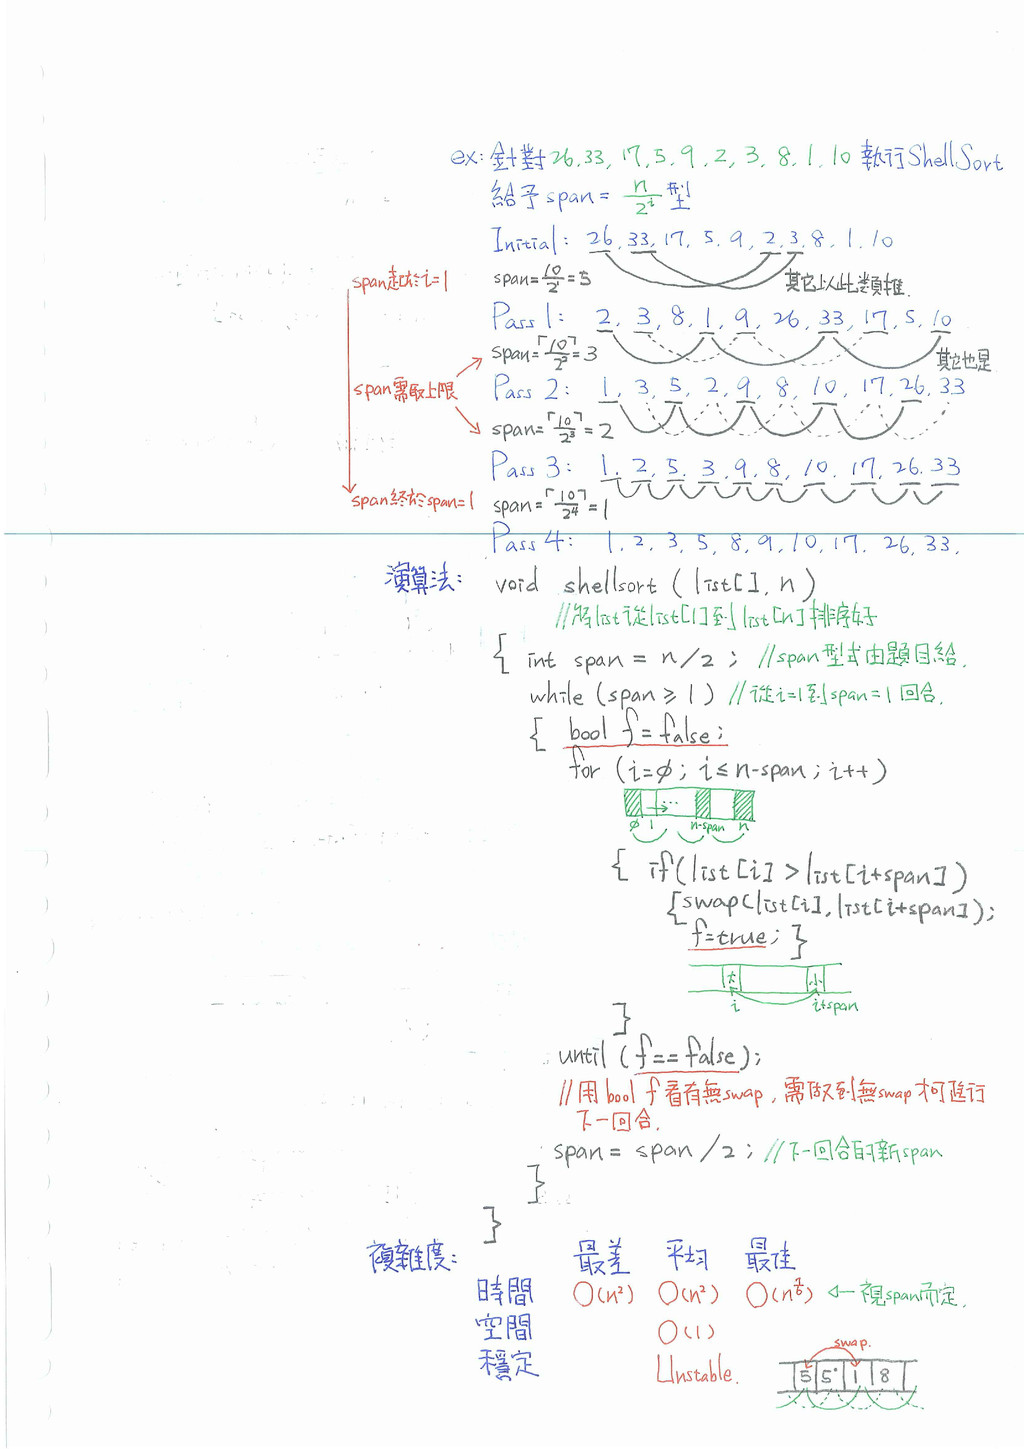 ex: 針對 26, 33, 17, 5, 9, 2, 3, 8, 1, 10 執行ShellSort
給予 span = n/2^i 型
Initial: 26, 33, 17, 5, 9, 2, 3, 8, 1, 10
span起於i=1
span=10/2=5
其它以此類推.
Pass 1: 2, 3, 8, 1, 9, 26, 33, 17, 5, 10
span=⌈10/2²⌉=3
其它也是
span需取上限
Pass 2: 1, 3, 5, 2, 9, 8, 10, 17, 26, 33
span=⌈10/2³⌉=2
Pass 3: 1, 2, 5, 3, 9, 8, 10, 17, 26, 33
span終於span=1
span=⌈10/2⁴⌉=1
Pass 4: 1, 2, 3, 5, 8, 9, 10, 17, 26, 33.
演算法: void shellsort (list[], n)
//將list從list[1]到list[n]排序好
{ int span = n/2; //span型式由題目給.
while (span ≥ 1) //從i=1到span=1回合.
{ bool f = false;
for (i=∅; i≤n-span; i++)
∅ 1 ... n-span n
{ if(list[i] > list[i+span])
{swap(list[i], list[i+span]);
f=true; }
大 小
i i+span
}
until (f==false);
//用bool f看有無swap, 需做到無swap才可進行
下一回合.
span = span/2; //下一回合的新span
}
}
複雜度: 最差 平均 最佳
時間 O(n²) O(n²) ← 視span而定.
空間 O(1)
穩定 Unstable.
swap.
5 5' 1 8